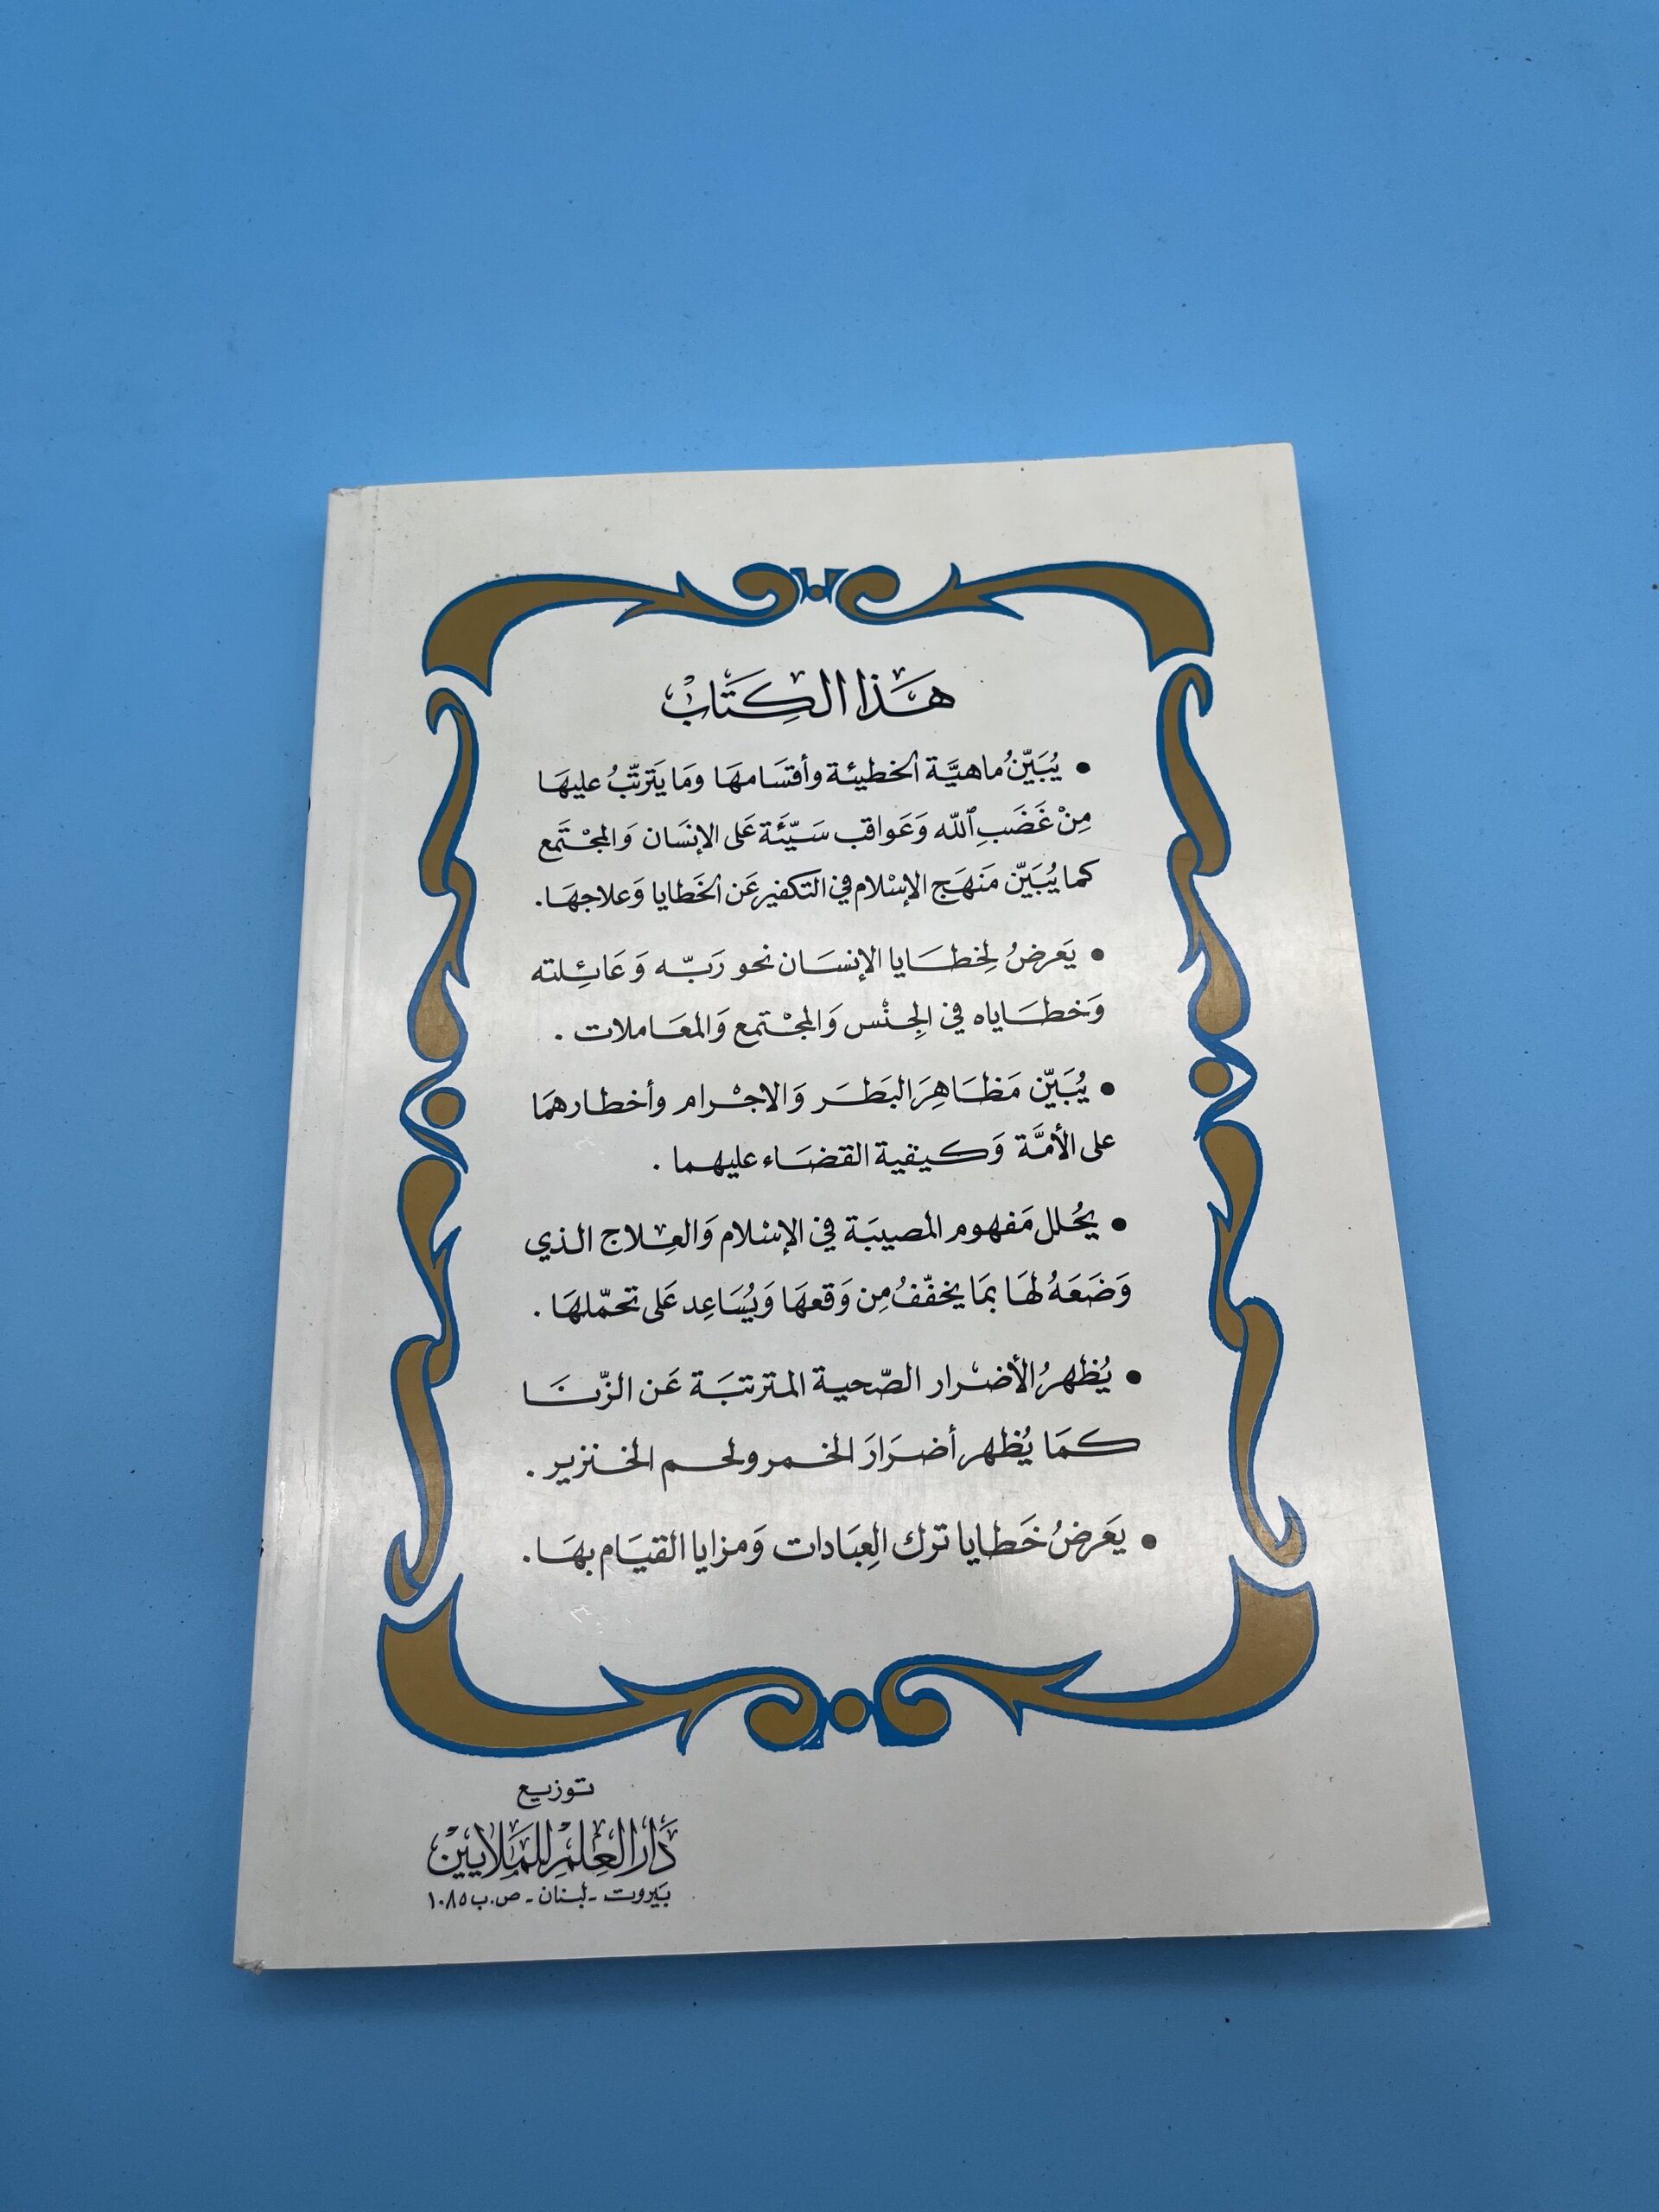 هَذا الكِتَابْ
• يُبَيّنُ ماهيَّة الخطيئة وأقسَامهَا ومَا يَترتّبُ عليهَا
مِنْ غَضَبِ ٱللّه وَعَواقب سَيّئَة عَلى الإنسَان وَالمجْتَمع
كما يُبَيّن مَنهَج الإسْلام في التكفير عَن الخَطايا وَعلاجهَا .
• يَعرضُ لِخطَايا الإنسَان نحو رَبّه وَعَائِلته
وَخطَاياه في الجِنْس وَالمجْتمع وَالمعَاملات .
• يُبَيّن مَظَاهِرَ البَطَرَ وَالاجْرام وأخطارهمَا
على الأمَّة وَكيفية القضَاء عليهما .
• يحُلل مَفهوم المصيبَة في الإسْلام وَالعِلاج الذي
وَضَعَهُ لهَا بمَا يخفّفُ مِن وَقعهَا وَيُسَاعِد عَلى تحمّلهَا .
• يُظهرُ الأضْرار الصّحية المترتبَة عَن الزّنَا
كمَا يُظهر أضرَارَ الخمر ولحم الخنزير .
• يعَرضُ خَطايا ترك العِبَادات وَمزايا القيَام بهَا .
توزيع
دَار العِلمْ للمَلايينْ
بيَروت - لبنان - ص.ب ١٠٨٥